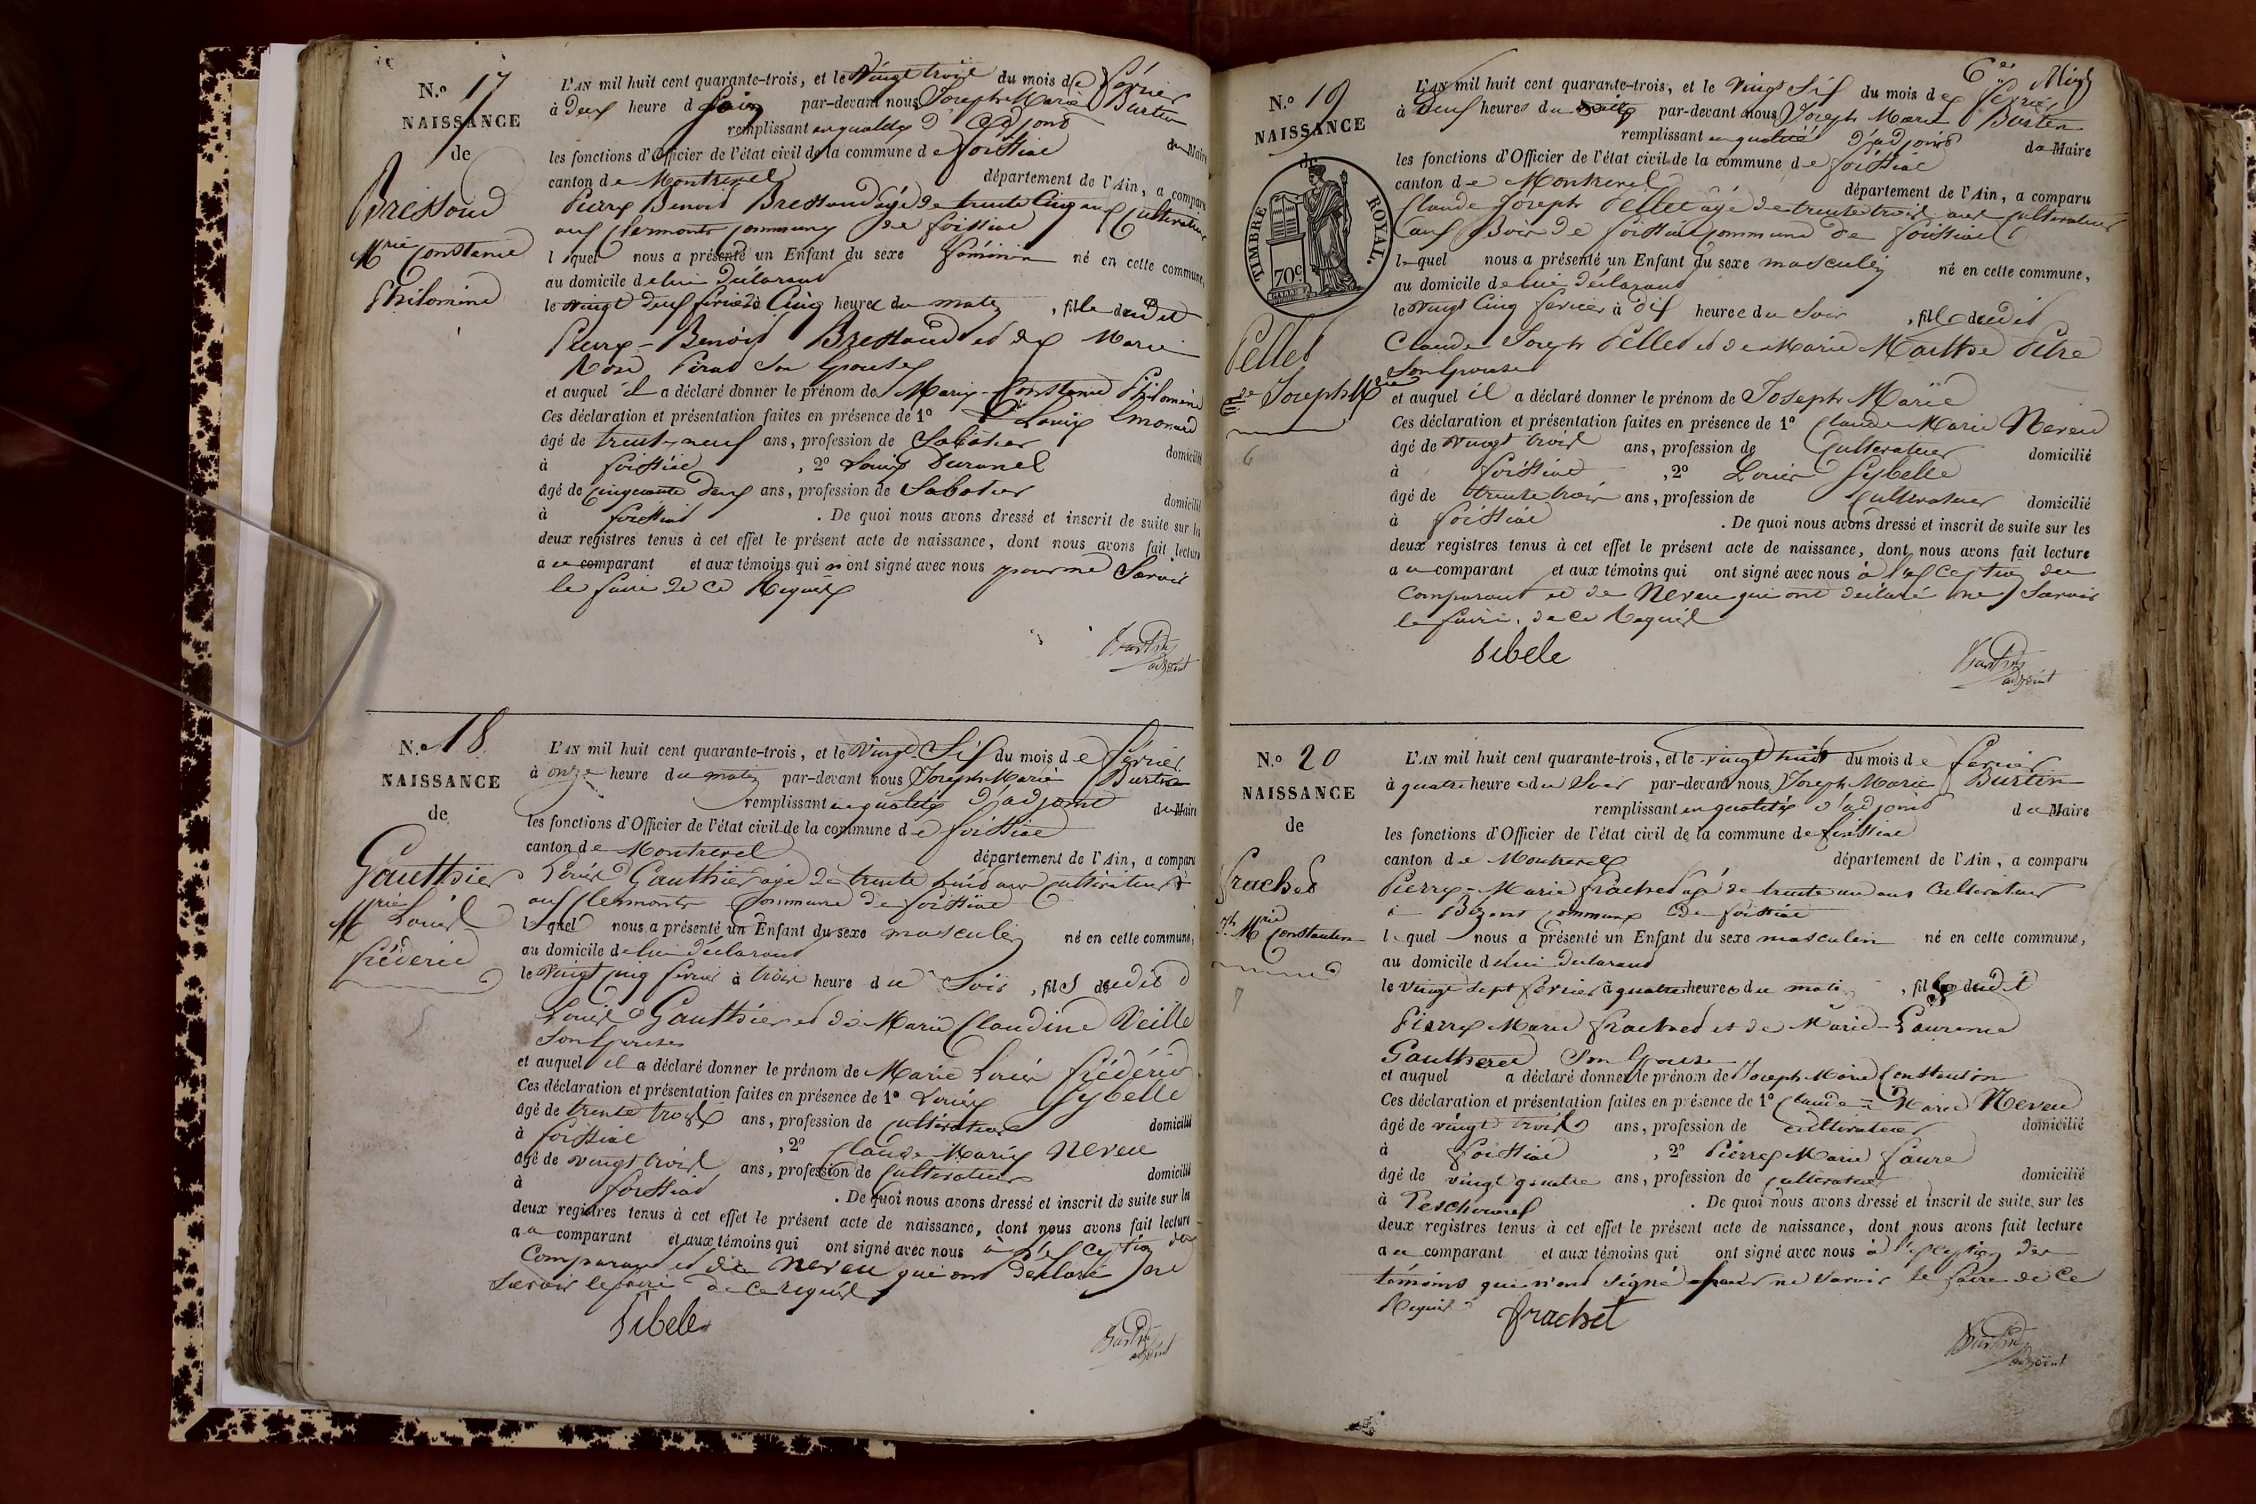 N.o 17
NAISSANCE
de
Bressoud
Mrie Constance
Philomine
L'AN mil huit cent quarante-trois, et le Vingt trois du mois de février
à Deux heure d Soir par-devant nous Joseph Marie Burtin
remplissant en qualité d'adjoint du Maire
les fonctions d'Officier de l'état civil de la commune de foissiat
canton de Montrevel département de l'Ain, a comparu
Pierre Benoit Bressoud âgé de trente Cinq ans Cultivateur
aux Clermonts Commune de foissiat
lequel nous a présenté un Enfant du sexe féminin né en cette commune,
au domicile de lui déclarant
le vingt deux février à Cinq heure du matin, fille dudit
Pierre-Benoit Bressoud et de Marie
Rose son épouse
et auquel il a déclaré donner le prénom de Marie-Constance Philomine
Ces déclaration et présentation faites en présence de 1o Louis Emonard
âgé de trente neuf ans, profession de Sabotier domicilié
à foissiat, 2o Louis Duranel
âgé de Cinquante Deux ans, profession de Sabotier domicilié
à foissiat. De quoi nous avons dressé et inscrit de suite sur les
deux registres tenus à cet effet le présent acte de naissance, dont nous avons fait lecture
au comparant et aux témoins qui n'ont signé avec nous pour ne Savoir
le faire de ce Requis
Burtin
adjoint
N.o 18
NAISSANCE
de
Gauthier
Mrie Louis
fréderic
5
L'AN mil huit cent quarante-trois, et le Vingt Six du mois de février
à onze heure du matin par-devant nous Joseph Marie Burtin
remplissant en qualité d'adjoint du Maire
les fonctions d'Officier de l'état civil de la commune de foissiat
canton de Montrevel département de l'Ain, a comparu
Louis Gauthier âgé de trente huit ans cultivateur
aux Clermonts Commune de foissiat
lequel nous a présenté un Enfant du sexe masculin né en cette commune,
au domicile de lui déclarant
le Vingt Cinq février à trois heure du Soir, fils dudit
Louis Gauthier et de Marie Claudine Veille
Son épouse
et auquel il a déclaré donner le prénom de Marie Louis frédéric
Ces déclaration et présentation faites en présence de 1o Louis Sybelle
âgé de trente trois ans, profession de cultivateur domicilié
à foissiat, 2o Claude Marie Neveu
âgé de vingt trois ans, profession de Cultivateur domicilié
à foissiat. De quoi nous avons dressé et inscrit de suite sur les
deux registres tenus à cet effet le présent acte de naissance, dont nous avons fait lecture
au comparant et aux témoins qui ont signé avec nous à l'exception du
Comparant et de Neveu qui ont déclaré ne
Savoir le faire de ce requis
Sibele
Burtin
adjoint
N.o 19
NAISSANCE
de
TIMBRE ROYAL.
70c
Pellet
Joseph Mrie
6
L'AN mil huit cent quarante-trois, et le Vingt Six du mois de février
à Deux heures du par-devant nous Joseph Marie Burtin
remplissant en qualité d'adjoint du Maire
les fonctions d'Officier de l'état civil de la commune de foissiat
canton de Montrevel département de l'Ain, a comparu
Claude Joseph Pellet âgé de trente trois ans cultivateur
aux Bois de foissiat Commune de foissiat
lequel nous a présenté un Enfant du sexe masculin né en cette commune,
au domicile de lui déclarant
le Vingt Cinq février à dix heure du Soir, fils dudit
Claude Joseph Pellet et de Marie Marthe Pitre
Son épouse
et auquel il a déclaré donner le prénom de Joseph Marie
Ces déclaration et présentation faites en présence de 1o Claude Marie Neveu
âgé de vingt trois ans, profession de Cultivateur domicilié
à foissiat, 2o Louis Sybelle
âgé de trente trois ans, profession de Cultivateur domicilié
à foissiat. De quoi nous avons dressé et inscrit de suite sur les
deux registres tenus à cet effet le présent acte de naissance, dont nous avons fait lecture
au comparant et aux témoins qui ont signé avec nous à l'exception du
Comparant et de Neveu qui ont déclaré ne Savoir
le faire, de ce Requis
Sibele
Burtin
adjoint
N.o 20
NAISSANCE
de
frachet
Jph Mrie Constantin
7
L'AN mil huit cent quarante-trois, et le vingt huit du mois de février
à quatre heure du Soir par-devant nous Joseph Marie Burtin
remplissant en qualité d'adjoint du Maire
les fonctions d'Officier de l'état civil de la commune de foissiat
canton de Montrevel département de l'Ain, a comparu
Pierre-Marie frachet âgé de trente un ans Cultivateur
à Commune de foissiat
lequel nous a présenté un Enfant du sexe masculin né en cette commune,
au domicile de lui déclarant
le vingt sept février à quatre heure du matin, fils dudit
Pierre Marie frachet et de Marie-Laurence
Gautheret Son épouse
et auquel a déclaré donner le prénom de Joseph Marie Constantin
Ces déclaration et présentation faites en présence de 1o Claude Marie Neveu
âgé de vingt trois ans, profession de cultivateur domicilié
à foissiat, 2o Pierre Marie faure
âgé de vingt quatre ans, profession de cultivateur domicilié
à . De quoi nous avons dressé et inscrit de suite sur les
deux registres tenus à cet effet le présent acte de naissance, dont nous avons fait lecture
au comparant et aux témoins qui ont signé avec nous à l'exception des
témoins qui n'ont signé pour ne savoir le faire de ce
Requis
frachet
Burtin
adjoint